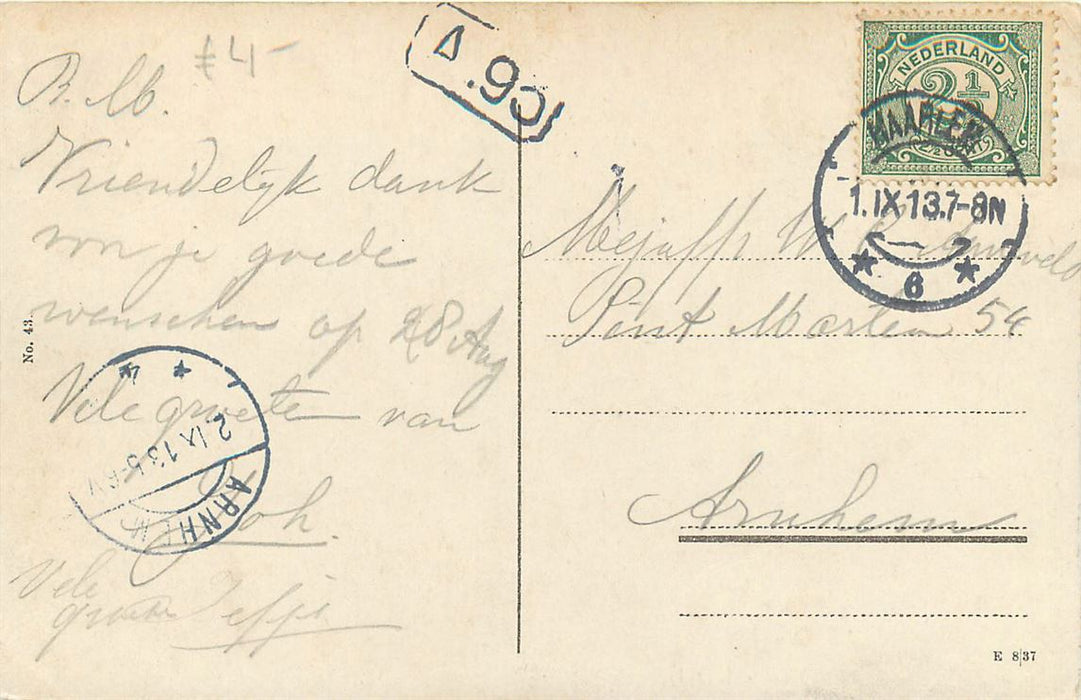 B. M.
Vriendelijk dank
von je goede
wenschen op 28 Aug
Vele groeten van
Joh.
Vele
groeten
No. 43.
ARNHEM
2.IX.13.5-6V
NEDERLAND
2½
HAARLEM
1.IX.13.7-8N
6
Mejuffr W
Sint Marten 54
Arnhem
E 8|37